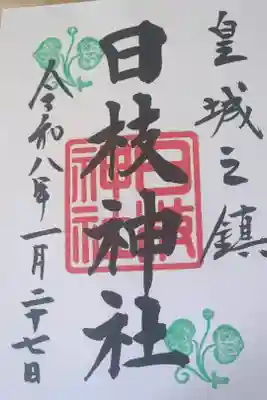 皇城之鎮
日枝神社
日枝神社
令和八年一月二十七日